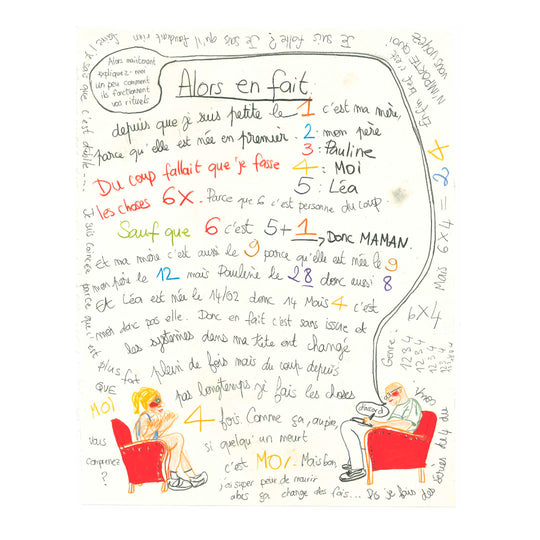 Alors maintenant
expliquez-moi
un peu comment
ils fonctionnent
vos rituels
Alors en fait.
depuis que je suis petite le 1 c'est ma mère,
parce qu'elle est née en premier. 2 mon père
3 : Pauline
Du coup fallait que je fasse 4 : Moi
5 : Léa
les choses 6x. Parce que 6 c'est personne du coup.
Sauf que 6 c'est 5+1
→ Donc MAMAN.
Et ma mère c'est aussi le 9 parce qu'elle est née le 9
mon père le 12 mais Pauline le 28 donc aussi 8
Et Léa est née le 14/02 donc 14 Mais 4 c'est
moi donc pas elle. Donc en fait c'est sans issue et
les systèmes dans ma tête ont changé
plein de fois mais du coup depuis
pas longtemps je fais les choses
4 fois Comme ça, au pire,
si quelqu'un meurt
c'est MOi. Mais bon,
j'ai super peur de mourir
alors ça change des fois...
Là je fais des
séries de 4 du
coup
Genre :
1234
1234
1234
1234
6x4
Mais 6x4 = 24
Enfin bref c'est
N'IMPORTE QUOI
VOUS VOYEZ
Je suis folle ? Je sais qu'il faudrait rien
faire ! Je sais que c'est débile
Je suis coincée parce que
plus fort
QUE
MOi
vous
comprenez
?
d'accord